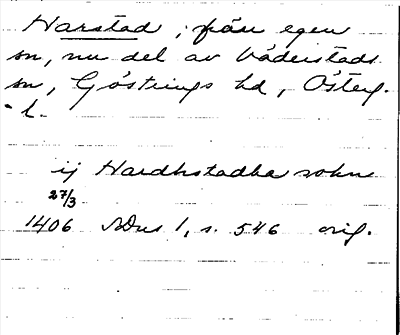 Harstad, från egen
sn, nu del av Väderstads
sn, Göstrings hd, Österg.
l.
ij Hardhstadha sokn
27/3
1406 SDns 1, s. 546 orig.